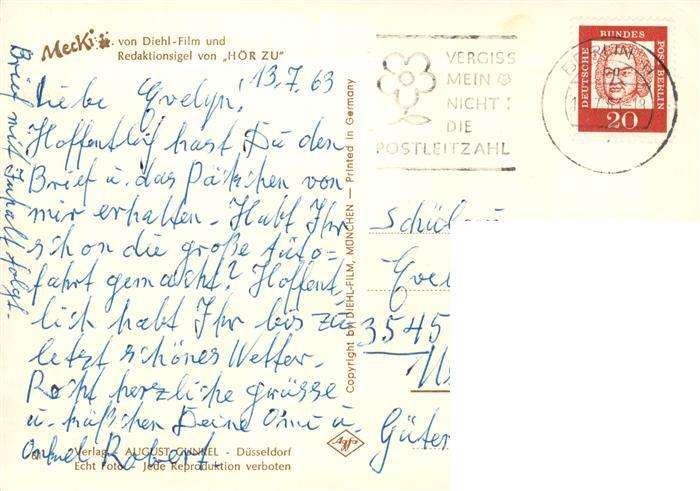 Mecki .. von Diehl-Film und
Redaktionsigel von „HÖR ZU"
13.7.63
Liebe Evelyn!
Hoffentlich hast Du den
Brief u. das Päckchen von
mir erhalten. Habt Ihr
schon die große Auto=
fahrt gemacht? Hoffent-
lich habt Ihr bis zu
letzt schönes Wetter.
Recht herzliche Grüsse
u. Küßchen Deine Omi u.
Onkel Robert.
Brief mit Inhalt folgt.
Verlag - AUGUST GUNKEL - Düsseldorf
Echt Foto - Jede Reproduktion verboten
Copyright by DIEHL-FILM, MÜNCHEN — Printed in Germany
Agfa
VERGISS
MEIN
NICHT
DIE
POSTLEITZAHL
BERLIN
DEUTSCHE BUNDESPOST BERLIN
20
Schüleri
Eve
3545
Güter